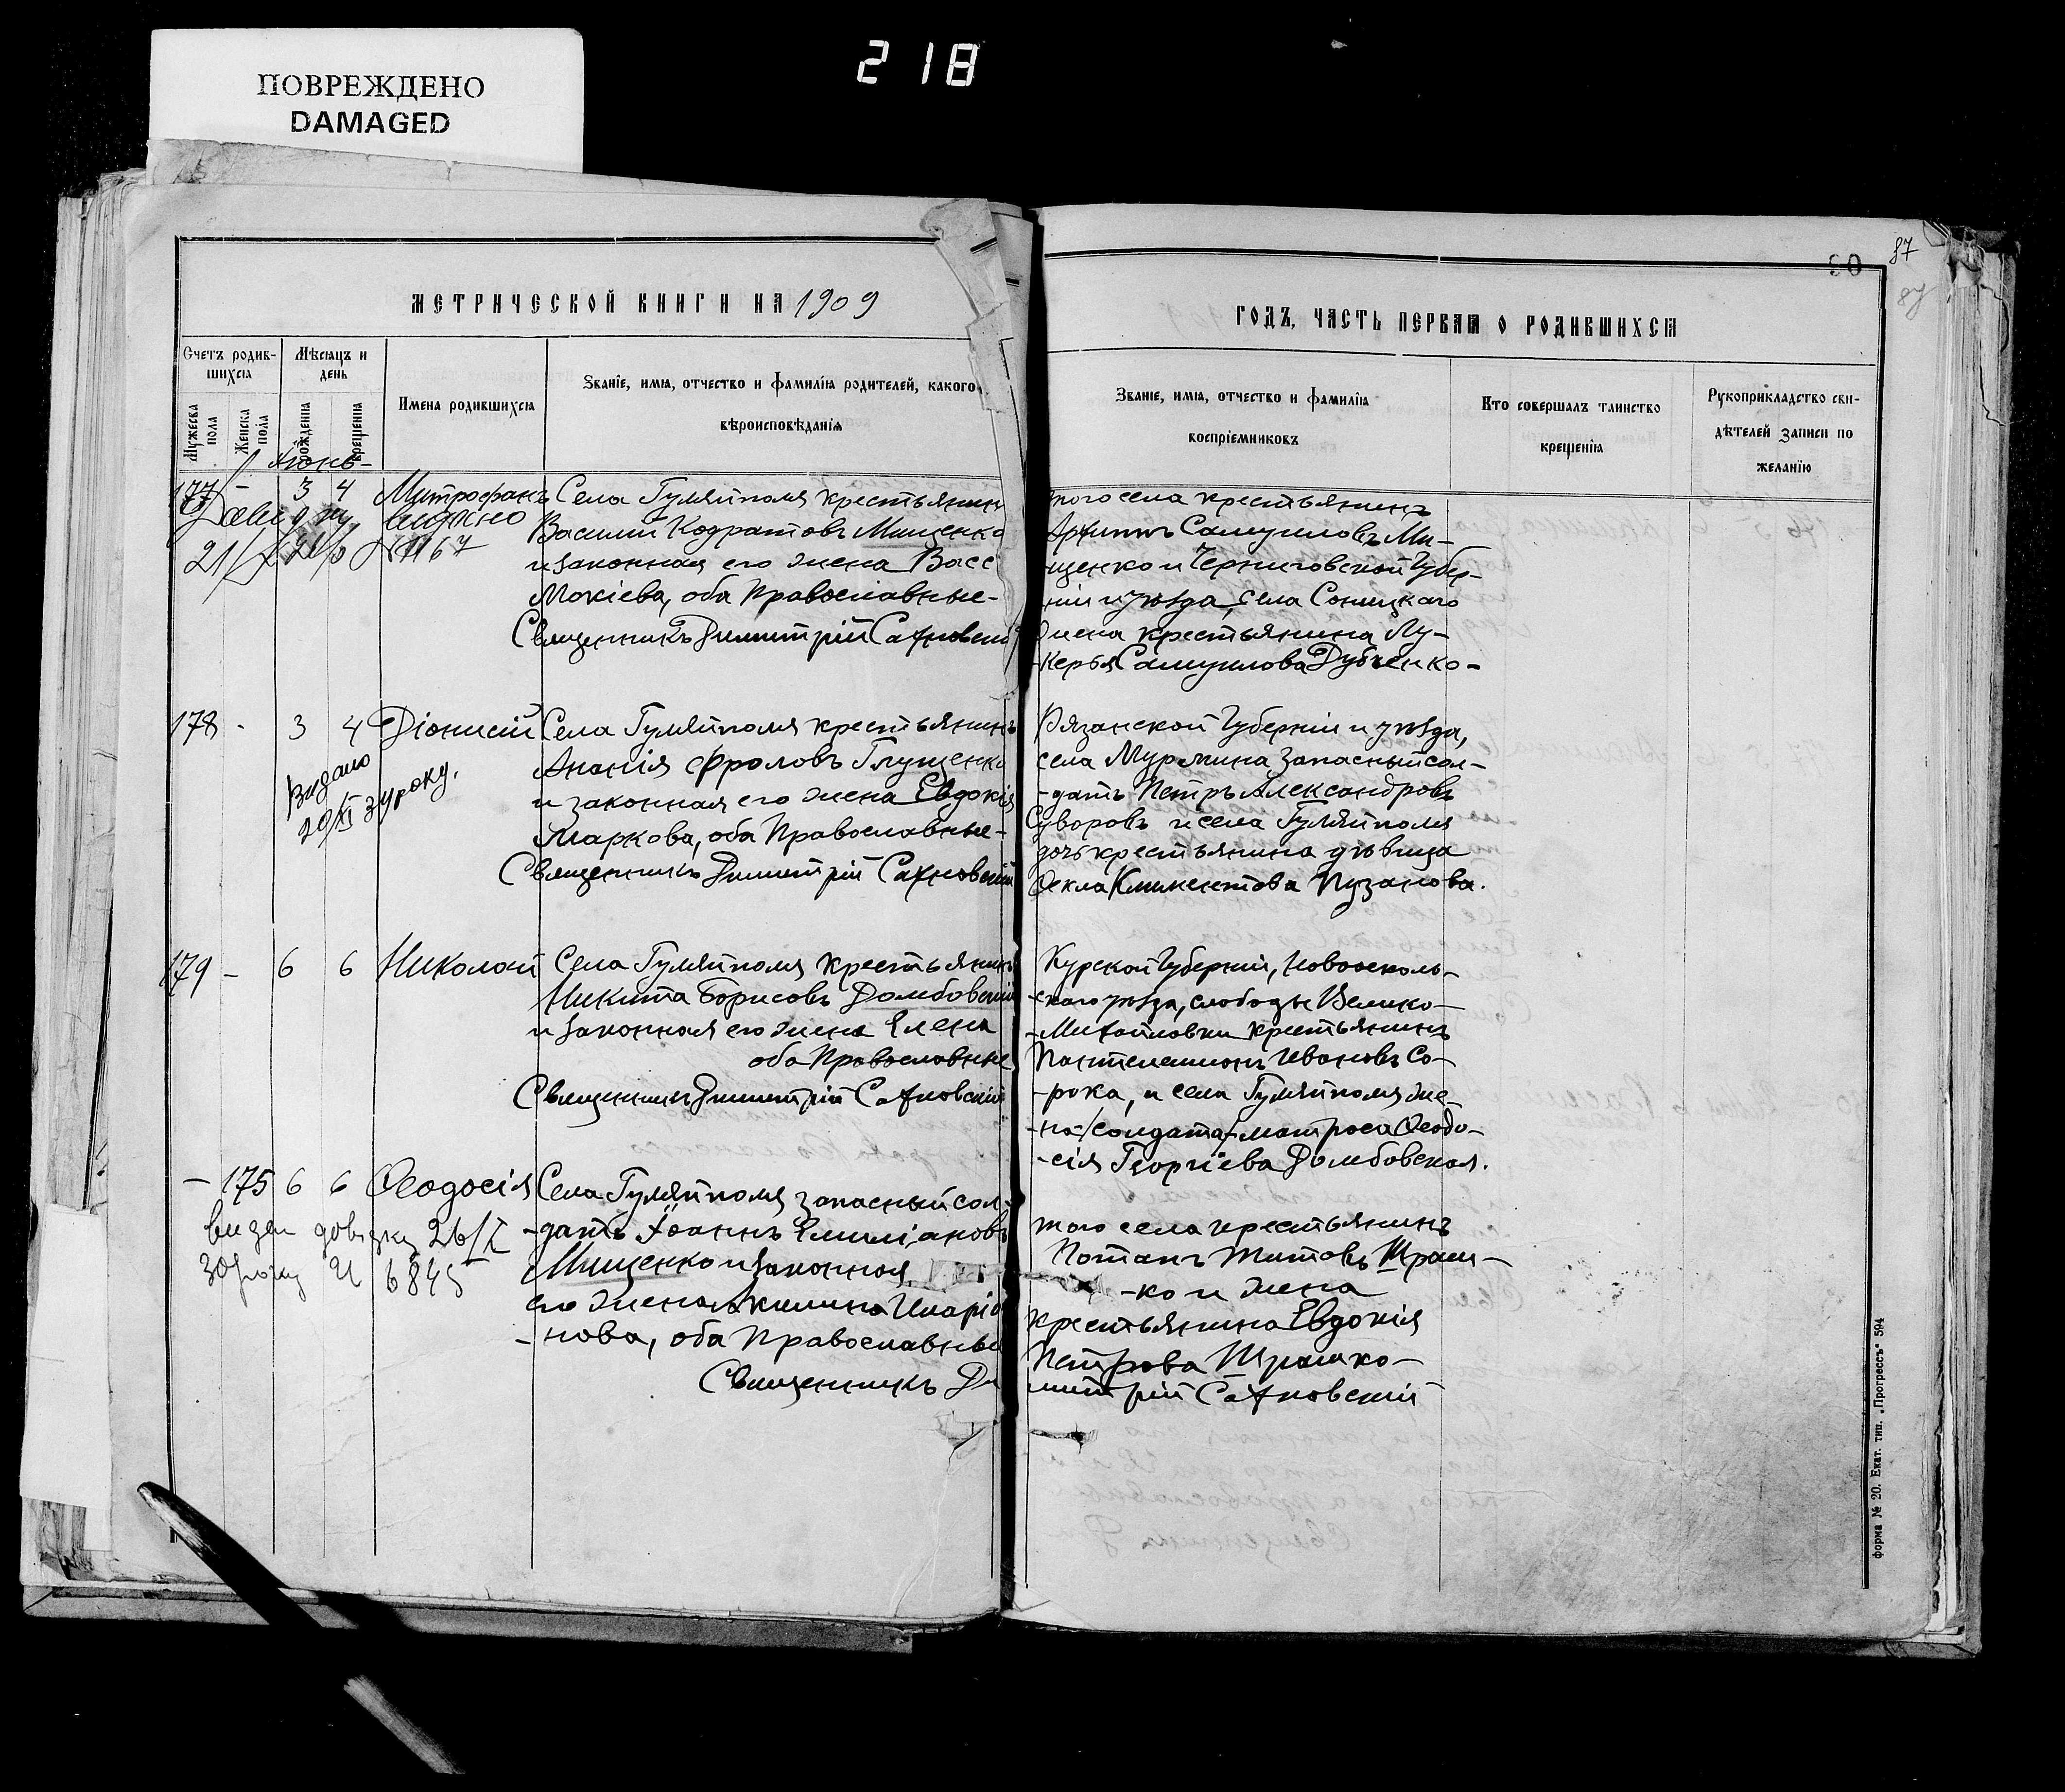 ПОВРЕЖДЕНО
DAMAGED
218
87
90
МЕТРИЧЕСКОЙ КНИГИ НА 1909
Счетъ родив-
шихся
Мужеска пола
Женска пола
Мѣсяцъ и
день
рожденія
крещенія
Имена родившихся
Званіе, имя, отчество и фамилія родителей, какого
вѣроисповѣданія
Іюнь
177 - 3 4 Митрофанъ
21/X
Села Гуляйполя крестьянинъ
Василій Кодратовъ Мищенко
и законная его жена Васс
Мокіева, оба Православные-
Священникъ Димитрій Сахновскій
178 - 3 4 Діонисій
видано
29/XI 34 року.
Села Гуляйполя крестьянинъ
Ананія Фроловъ Глущенко
и законная его жена Евдокія
Маркова, оба Православные-
Священникъ Димитрій Сахновскій
179 - 6 6 Николай
Села Гуляйполя крестьянинъ
Никита Борисовъ Домбовскій
и законная его жена Елена
оба Православные
Священникъ Димитрій Сахновскій
- 175 6 6 Ѳеодосія
видан довідку 26/X
30 року № 6845
Села Гуляйполя запасный сол-
-датъ Іоаннъ Емиліановъ
Мищенко и законная
его жена Акилина Иларіо
-нова, оба Православные
Священникъ Ди
ГОДЪ, ЧАСТЬ ПЕРВАЯ О РОДИВШИХСЯ
Званіе, имя, отчество и фамилія
воспріемниковъ
Кто совершалъ таинство
крещенія
Рукоприкладство сви-
дѣтелей записи по
желанію
того села крестьянинъ
Архиппъ Самуиловъ Ми-
-щенко и Черниговской Губер-
ніи и уѣзда, села
жена крестьянина Лу-
-керья Самуилова Дубченко-
Рязанской Губерніи и уѣзда,
села Мурмина запасный сол-
-датъ Петръ Александровъ
Суворовъ и села Гуляйполя
дочь крестьянина дѣвица
Ѳекла Климентова Пузанова.
Курской Губерніи, Новоосколь-
-скаго уѣзда, слободы Велико-
-Михайловки крестьянинъ
Пантелеимонъ Ивановъ Со-
-рока, и села Гуляйполя же-
-на солдата-матроса Ѳеодо-
-сія Георгіева Домбовская.
того села крестьянинъ
Потапъ Титовъ
-ко и жена
крестьянина Евдокія
Петрова
митрій Сахновскій
форма № 20. Екат. тип. „Прогрессъ" 594